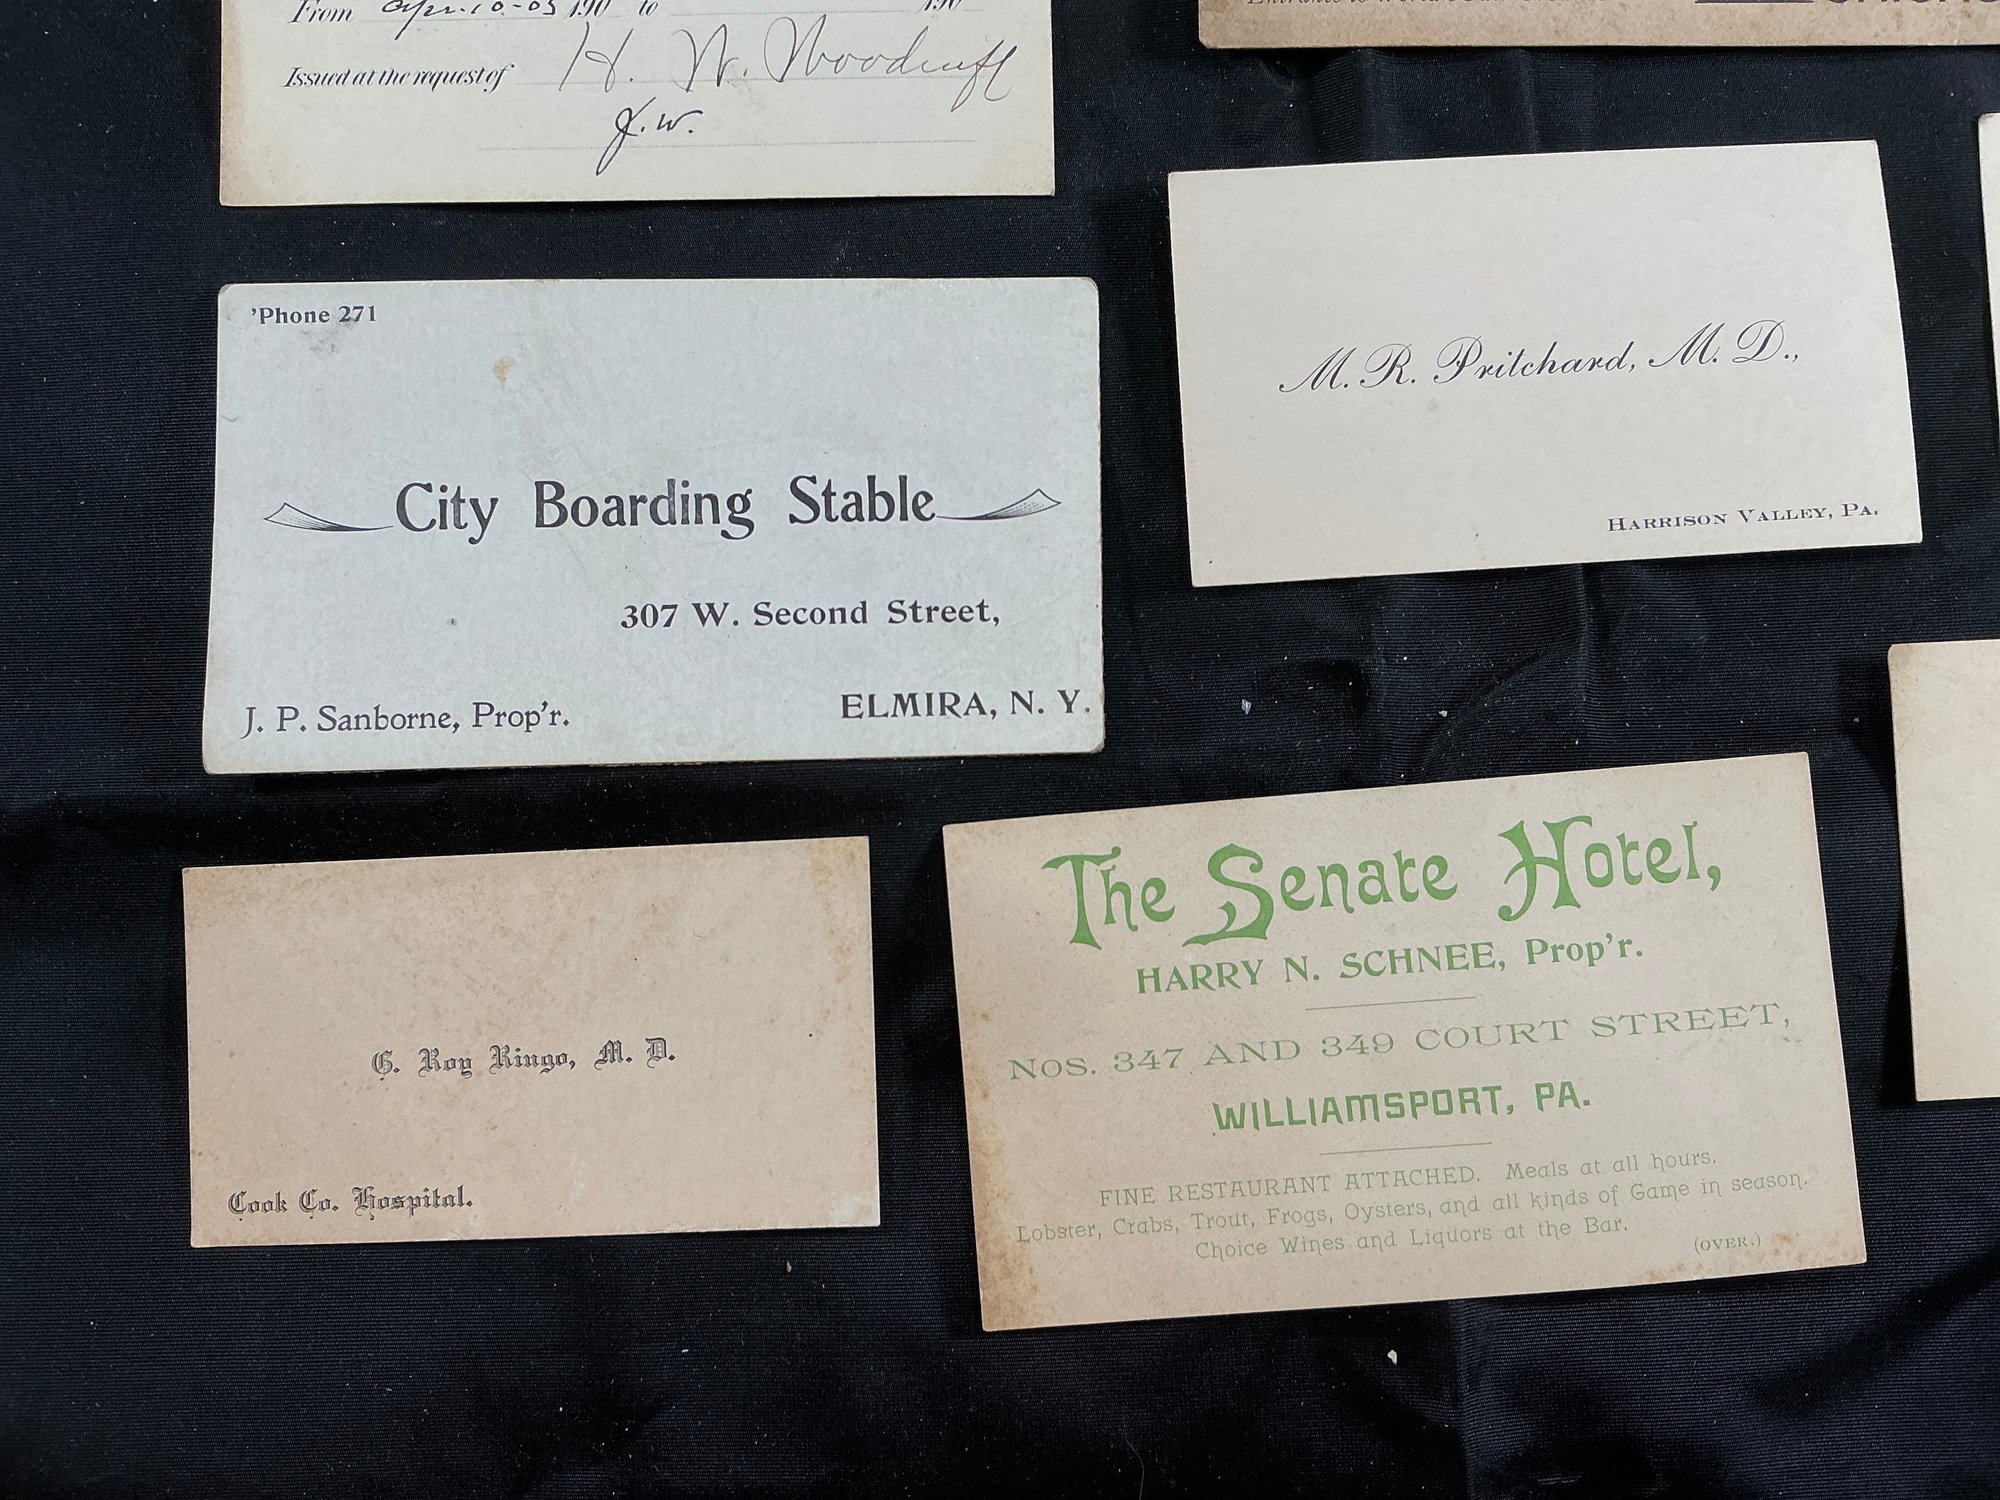 From Apr. 10-03 190 to 190
Issued at the request of H. W. Woodruff
J. W.
'Phone 271
City Boarding Stable
307 W. Second Street,
J. P. Sanborne, Prop'r.
ELMIRA, N. Y.
M. R. Pritchard, M. D.,
HARRISON VALLEY, PA.
G. Roy Ringo, M. D.
Cook Co. Hospital.
The Senate Hotel,
HARRY N. SCHNEE, Prop'r.
NOS. 347 AND 349 COURT STREET,
WILLIAMSPORT, PA.
FINE RESTAURANT ATTACHED. Meals at all hours.
Lobster, Crabs, Trout, Frogs, Oysters, and all kinds of Game in season.
Choice Wines and Liquors at the Bar.
(OVER.)